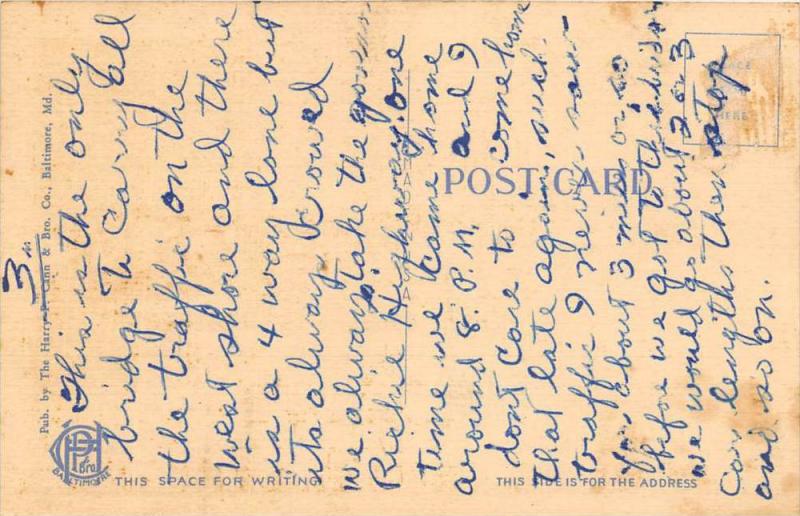 3
This is the only
bridge to carry all
the traffic on the
west shore and there
is a 4 way lone but
its always Crowed
we always take the govenor
Richie Highway. one
time we came home
around 8 P.M. and I
dont care to come home
that late again, such
traffic I never saw
for about 3 miles or so
before we got to the bridge
we would go about 2 or 3
car lengths then stop
and so on.
Pub. by The Harry P. Cann & Bro. Co., Baltimore, Md.
POST CARD
PLACE
HERE
HPC
& Bro.
BALTIMORE
THIS SPACE FOR WRITING
THIS SIDE IS FOR THE ADDRESS